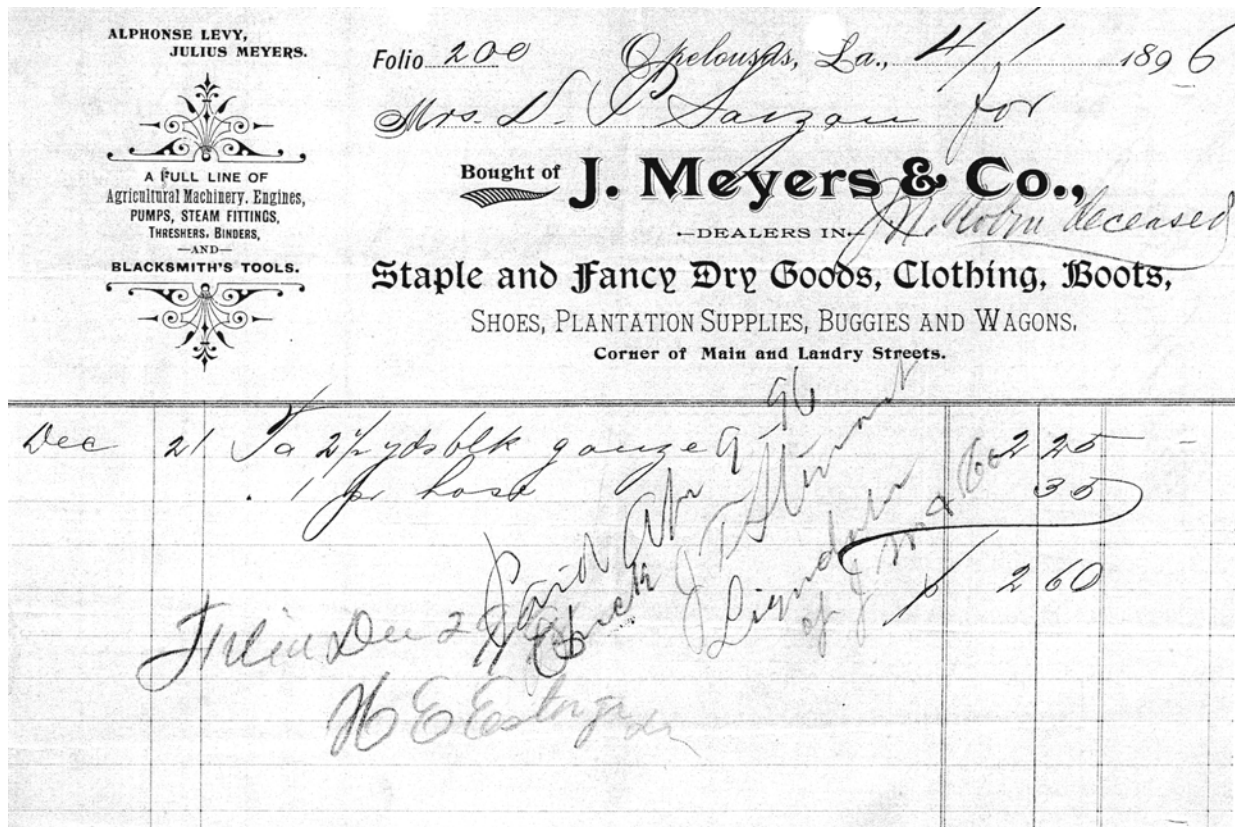 ALPHONSE LEVY,
JULIUS MEYERS.
A FULL LINE OF
Agricultural Machinery, Engines,
PUMPS, STEAM FITTINGS,
THRESHERS, BINDERS,
—AND—
BLACKSMITH'S TOOLS.
Folio 200 Opelousas, La., 4/1 1896
Mrs. D. P. Saizan for
J. N. Robin deceased
Bought of J. Meyers & Co.,
—DEALERS IN—
Staple and Fancy Dry Goods, Clothing, Boots,
SHOES, PLANTATION SUPPLIES, BUGGIES AND WAGONS,
Corner of Main and Landry Streets.
Dec 21 To 2½ yds blk gauze 9 2 25
. 1 pr hose 35
$ 2 60
Paid Apr 96
Check J
Liquidator
of J M & Co
Filed Dec 2
H E Estorge